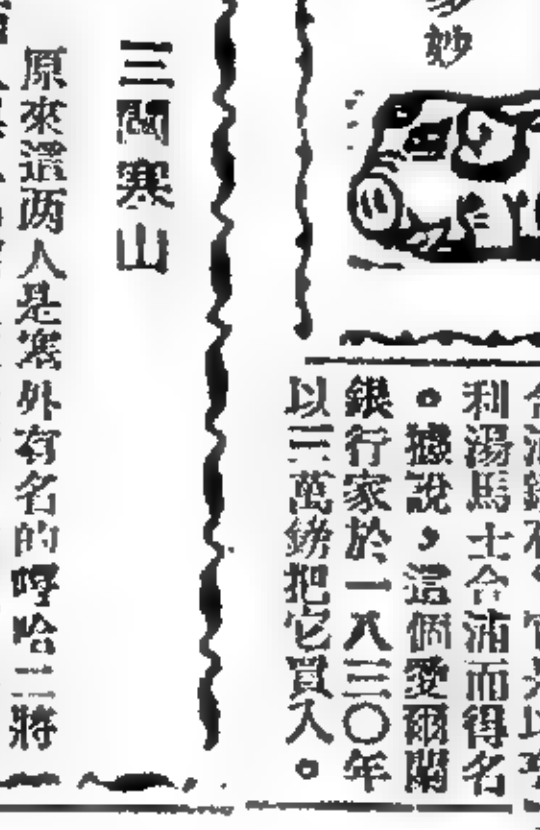 妙
利湯馬士合浦而得名
。據說，這個愛爾蘭
銀行家於一八三〇年
以三萬鎊把它買入。
三闖寒山
原來這两人是塞外有名的哼哈二將